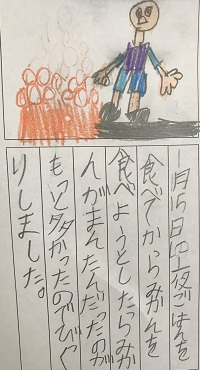 1月15日に夜ごはんを
食べてからみかんを
食べようとしたらみか
んがまんたんだったのが
もっと多かったのでびっく
りしました。